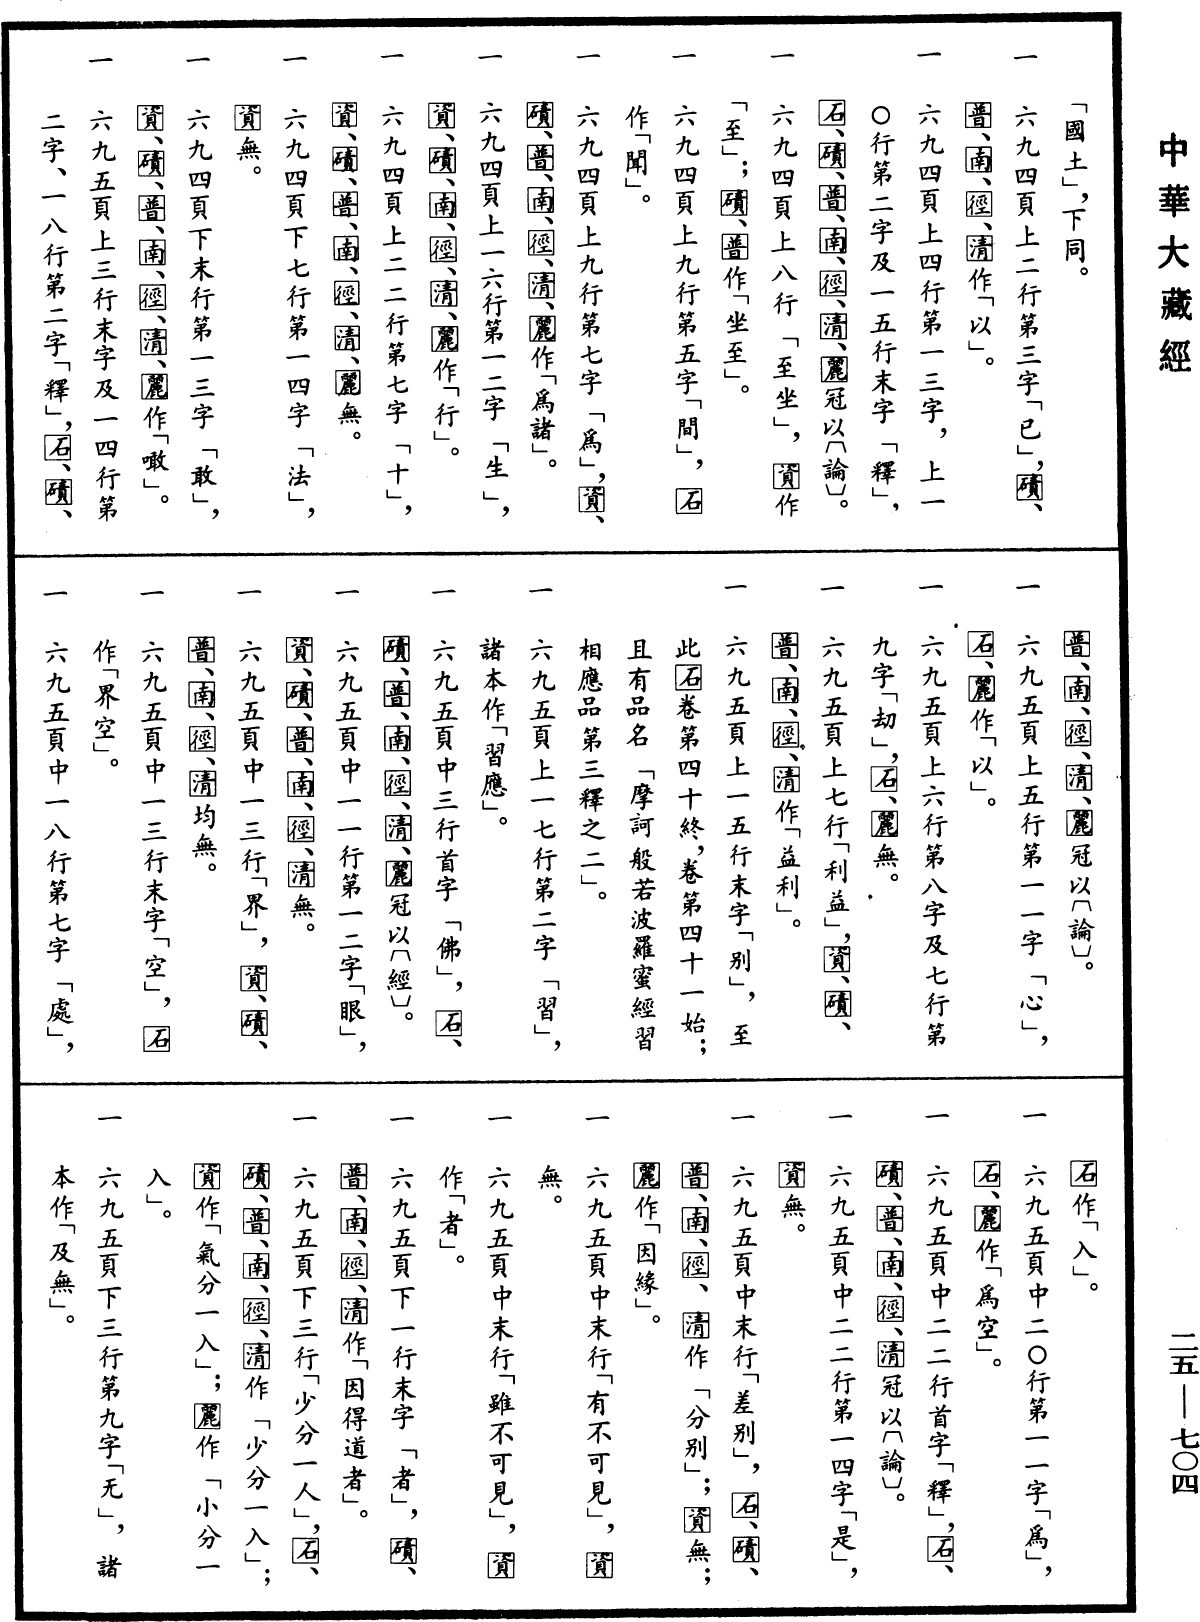 中華大藏經
「國土」，下同。
一　六九四頁上二行第三字「已」，磧、
普、南、徑、清作「以」。
一　六九四頁上四行第一三字，上一
〇行第二字及一五行末字「釋」，
石、磧、普、南、徑、清、麗冠以〔論〕。
一　六九四頁上八行「至坐」，資作
「至」；磧、普作「坐至」。
一　六九四頁上九行第五字「間」，石
作「聞」。
一　六九四頁上九行第七字「爲」，資、
磧、普、南、徑、清、麗作「爲諸」。
一　六九四頁上一六行第一二字「生」，
資、磧、南、徑、清、麗作「行」。
一　六九四頁上二二行第七字「十」，
資、磧、普、南、徑、清、麗無。
一　六九四頁下七行第一四字「法」，
資無。
一　六九四頁下末行第一三字「敢」，
資、磧、普、南、徑、清、麗作「噉」。
一　六九五頁上三行末字及一四行第
二字、一八行第二字「釋」，石、磧、
普、南、徑、清、麗冠以〔論〕。
一　六九五頁上五行第一一字「心」，
石、麗作「以」。
一　六九五頁上六行第八字及七行第
九字「劫」，石、麗無。
一　六九五頁上七行「利益」，資、磧、
普、南、徑、清作「益利」。
一　六九五頁上一五行末字「別」，至
此石卷第四十終，卷第四十一始；
且有品名「摩訶般若波羅蜜經習
相應品第三釋之二」。
一　六九五頁上一七行第二字「習」，
諸本作「習應」。
一　六九五頁中三行首字「佛」，石、
磧、普、南、徑、清、麗冠以〔經〕。
一　六九五頁中一一行第一二字「眼」，
資、磧、普、南、徑、清無。
一　六九五頁中一三行「界」，資、磧、
普、南、徑、清均無。
一　六九五頁中一三行末字「空」，石
作「界空」。
一　六九五頁中一八行第七字「處」，
石作「入」。
一　六九五頁中二〇行第一一字「爲」，
石、麗作「爲空」。
一　六九五頁中二二行首字「釋」，石、
磧、普、南、徑、清冠以〔論〕。
一　六九五頁中二二行第一四字「是」，
資無。
一　六九五頁中末行「差別」，石、磧、
普、南、徑、清作「分別」；資無；
麗作「因緣」。
一　六九五頁中末行「有不可見」，資
無。
一　六九五頁中末行「雖不可見」，資
作「者」。
一　六九五頁下一行末字「者」，磧、
普、南、徑、清作「因得道者」。
一　六九五頁下三行「少分一人」，石、
磧、普、南、徑、清作「少分一入」；
資作「氣分一入」；麗作「小分一
入」。
一　六九五頁下三行第九字「无」，諸
本作「及無」。
二五—七〇四